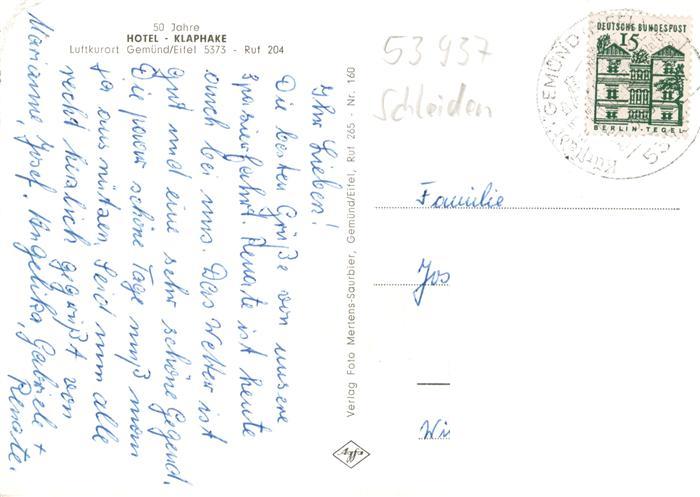 50 Jahre
HOTEL - KLAPHAKE
Luftkurort Gemünd/Eifel 5373 - Ruf 204
Ihr Lieben!
Die besten Grüße von unsere
Spazierfahrt. Renate ist heute
auch bei uns. Das Wetter ist
gut und eine sehr schöne Gegend.
Die paar schöne Tage muß man
ja aus nützen. Seid nun alle
recht herzlich gegrüßt von
Marianne, Josef, Angelika, Gabriele +
Renate.
Verlag Foto Mertens-Saurbier, Gemünd/Eifel, Ruf 265 - Nr. 160
53937
Schleiden
DEUTSCHE BUNDESPOST
15
BERLIN-TEGEL
GEMÜND
53
Familie
Jos
Wi